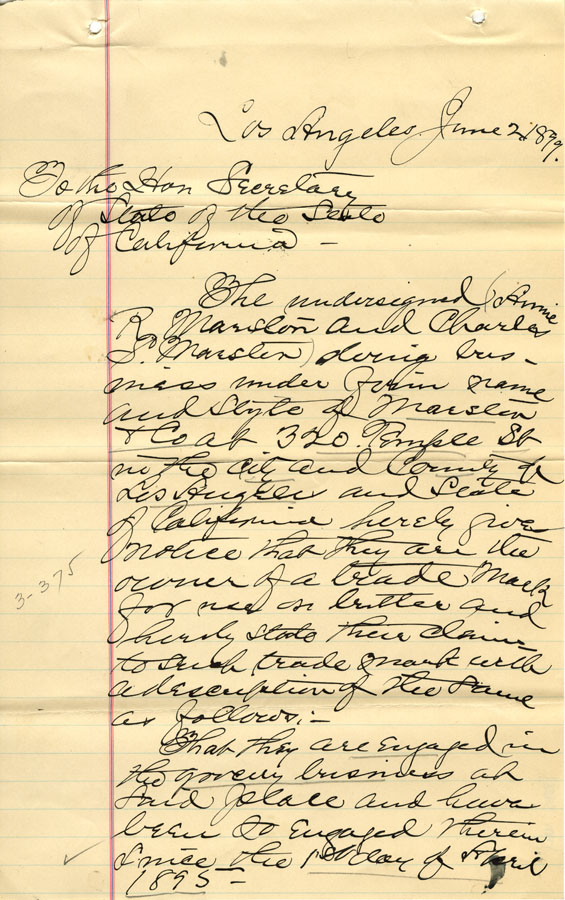 Los Angeles June 2, 1899.
To the Hon Secretary
of State of the State
of California —
The undersigned (Annie
R. Marston and Charles
S. Marston) doing bus-
iness under firm name
and style of Marston
& Co at 320. Temple St
in the City and County of
Los Angeles and State
of California hereby give
notice that they are the
owner of a trade Mark
for use on butter and
hereby state their claim
to such trade mark with
a description of the same
as follows:-
That they are engaged in
the grocery business at
said place and have
been so engaged therein
since the 1st day of April
1895—
3-375